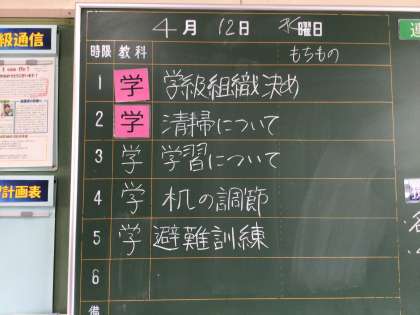 4月 12日 水曜日
時限 教科 もちもの
1 学 学級組織決め
2 学 清掃について
3 学 学習について
4 学 机の調節
5 学 避難訓練
6
備
級通信
計画表
進